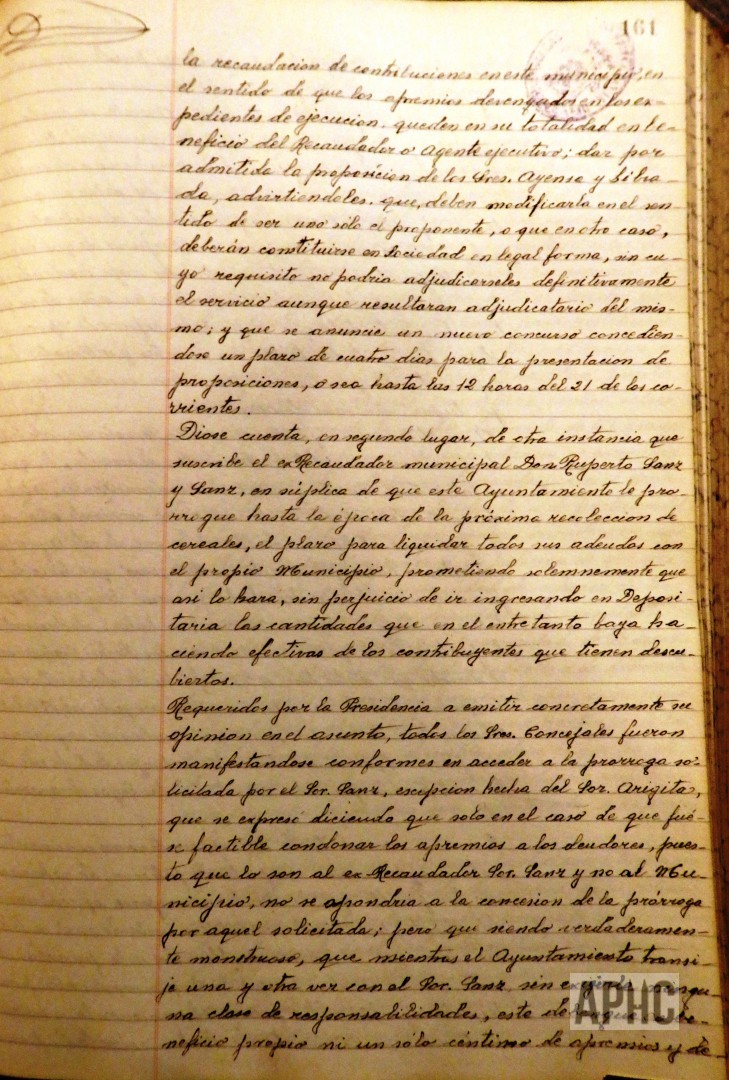 161
la recaudacion de contribuciones en este municipio, en
el sentido de que los apremios devengados en los ex-
pedientes de ejecucion, queden en su totalidad en be-
neficio del Recaudador o Agente ejecutivo; dar por
admitida la proposicion de los Sres. Ayensa y Libra-
da, advirtiendoles, que, deben modificarla en el sen-
tido de ser uno sólo el proponente, o que en otro caso,
deberán constituirse en Sociedad en legal forma, sin cu-
yo requisito no podria adjudicarseles definitivamente
el servicio aunque resultaran adjudicatario del mis-
mo; y que se anuncie un nuevo concurso concedien-
dose un plazo de cuatro dias para la presentacion de
proposiciones, o sea hasta las 12 horas del 21 de los co-
rrientes.
Diose cuenta, en segundo lugar, de otra instancia que
suscribe el ex-Recaudador municipal Don Ruperto Sanz
y Sanz, en súplica de que este Ayuntamiento le pro-
rrogue hasta la época de la próxima recoleccion de
cereales, el plazo para liquidar todos sus adeudos con
el propio Municipio, prometiendo solemnemente que
asi lo hara, sin perjuicio de ir ingresando en Deposi-
taria las cantidades que en el entretanto baya ha-
ciendo efectivas de los contribuyentes que tienen descu-
biertos.
Requeridos por la Presidencia a emitir concretamente su
opinion en el asunto, todos los Sres. Concejales fueron
manifestandose conformes en acceder a la prorroga so-
licitada por el Sor. Sanz, escepcion hecha del Sor. Arigita,
que se expreso diciendo que sólo en el caso de que fué-
se factible condonar los apremios a los deudores, pues-
to que lo son al ex-Recaudador Sor. Sanz y no al Mu-
nicipio, no se opondria a la concesion de la prórroga
por aquel solicitada; pero que siendo verdaderamen-
te monstruoso, que mientras el Ayuntamiento transi-
je una y otra vez con el Sor. Sanz sin exigirle ningu-
na clase de responsabilidades, este be-
neficio propio ni un sólo céntimo de apremios y de-
APHC